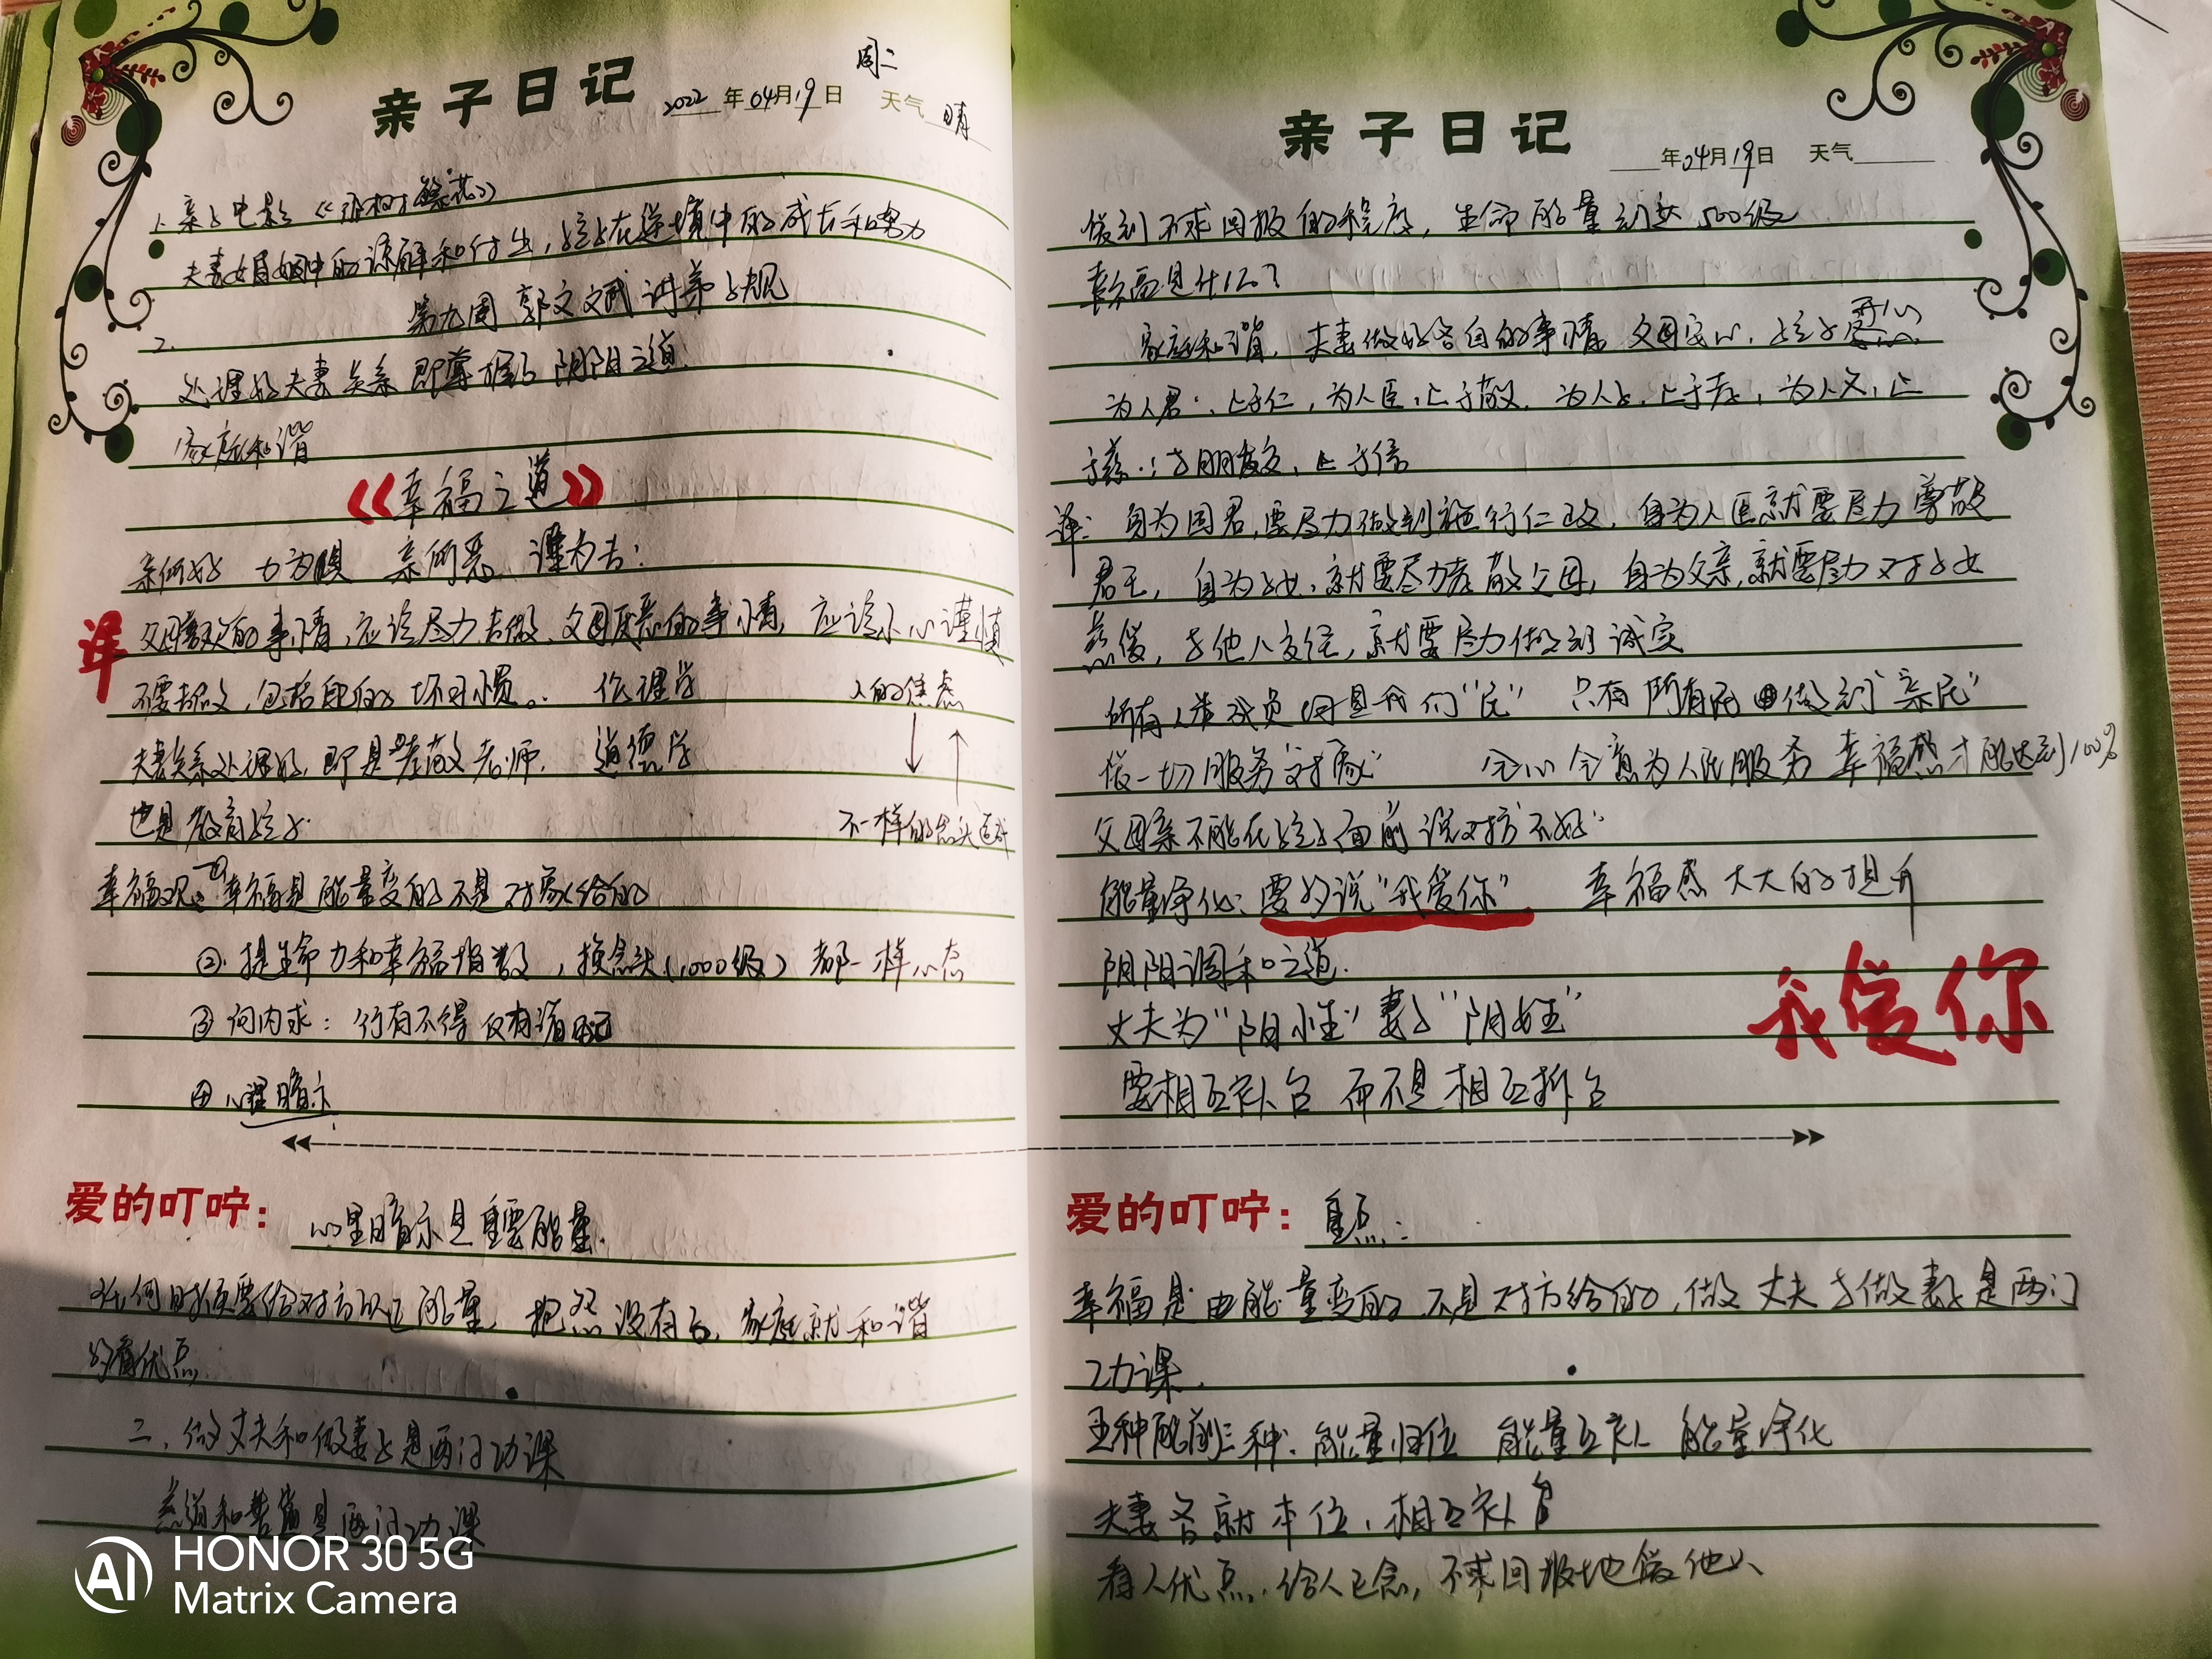 亲子日记 2022年04月19日 周二 天气 晴
1、亲子电影
夫妻婚姻中的谅解和付出，孩子在逆境中的成长和努力
第九周 郭文斌讲弟子规
2.
处理好夫妻关系 即掌握了阴阳之道.
家庭和谐
《幸福之道》
亲所好 力为具 亲所恶、谨为去：
译 父母喜欢的事情，应该尽力去做、父母厌恶的事情，应该小心谨慎
不要去做，包括自己的坏习惯。 伦理学
人的焦虑
夫妻关系处理好，即是孝敬老师. 道德学
也是教育孩子.
不一样的念头造成
幸福观：① 幸福是能量变的 不是对象给的
②. 提生命力和幸福指数，换念头（1,000级）都一样心态
③ 向内求：行有不得 反有诸己
④ 心理暗示
爱的叮咛： 心里暗示是重要能量.
任何时候要给对方以正能量，抱怨没有了，家庭就和谐
多看优点
二、做丈夫和做妻子是两门功课
是两门功课
亲子日记 年04月19日 天气
做到不求回报的程序，生命能量到达500级
幸福是什么？
家庭和谐，夫妻做好各自的事情，父母安心，孩子开心
为人君，止于仁，为人臣，止于敬，为人子，止于孝，为人父，止
于慈.；与朋友交，止于信
译：身为国君，要尽力做到施行仁政，身为人臣就要尽力尊敬
君王，身为子女，就要尽力孝敬父母，身为父亲，就要尽力对子女
慈爱，与他人交往，就要尽力做到诚实
所有人类成员 都是我们“民” 只有所有民 做到“亲民”
做一切服务“对象” 全心全意为人民服务 幸福感才能达到100%
父母亲不能在孩子面前说对方“不好”
能量净化：要多说“我爱你” 幸福感大大的提升
阴阳调和之道.
我爱你
丈夫为“阳性” 妻子“阴性”
要相互补台 而不是相互拆台
爱的叮咛： 重点：
幸福是由能量变的 不是对方给的，做丈夫与做妻子是两门
功课.
五种能前三种：能量归位 能量互补 能量净化
夫妻各就本位，相互补台
看人优点，给人正念，不求回报地爱他人
HONOR 30 5G
Matrix Camera
AI